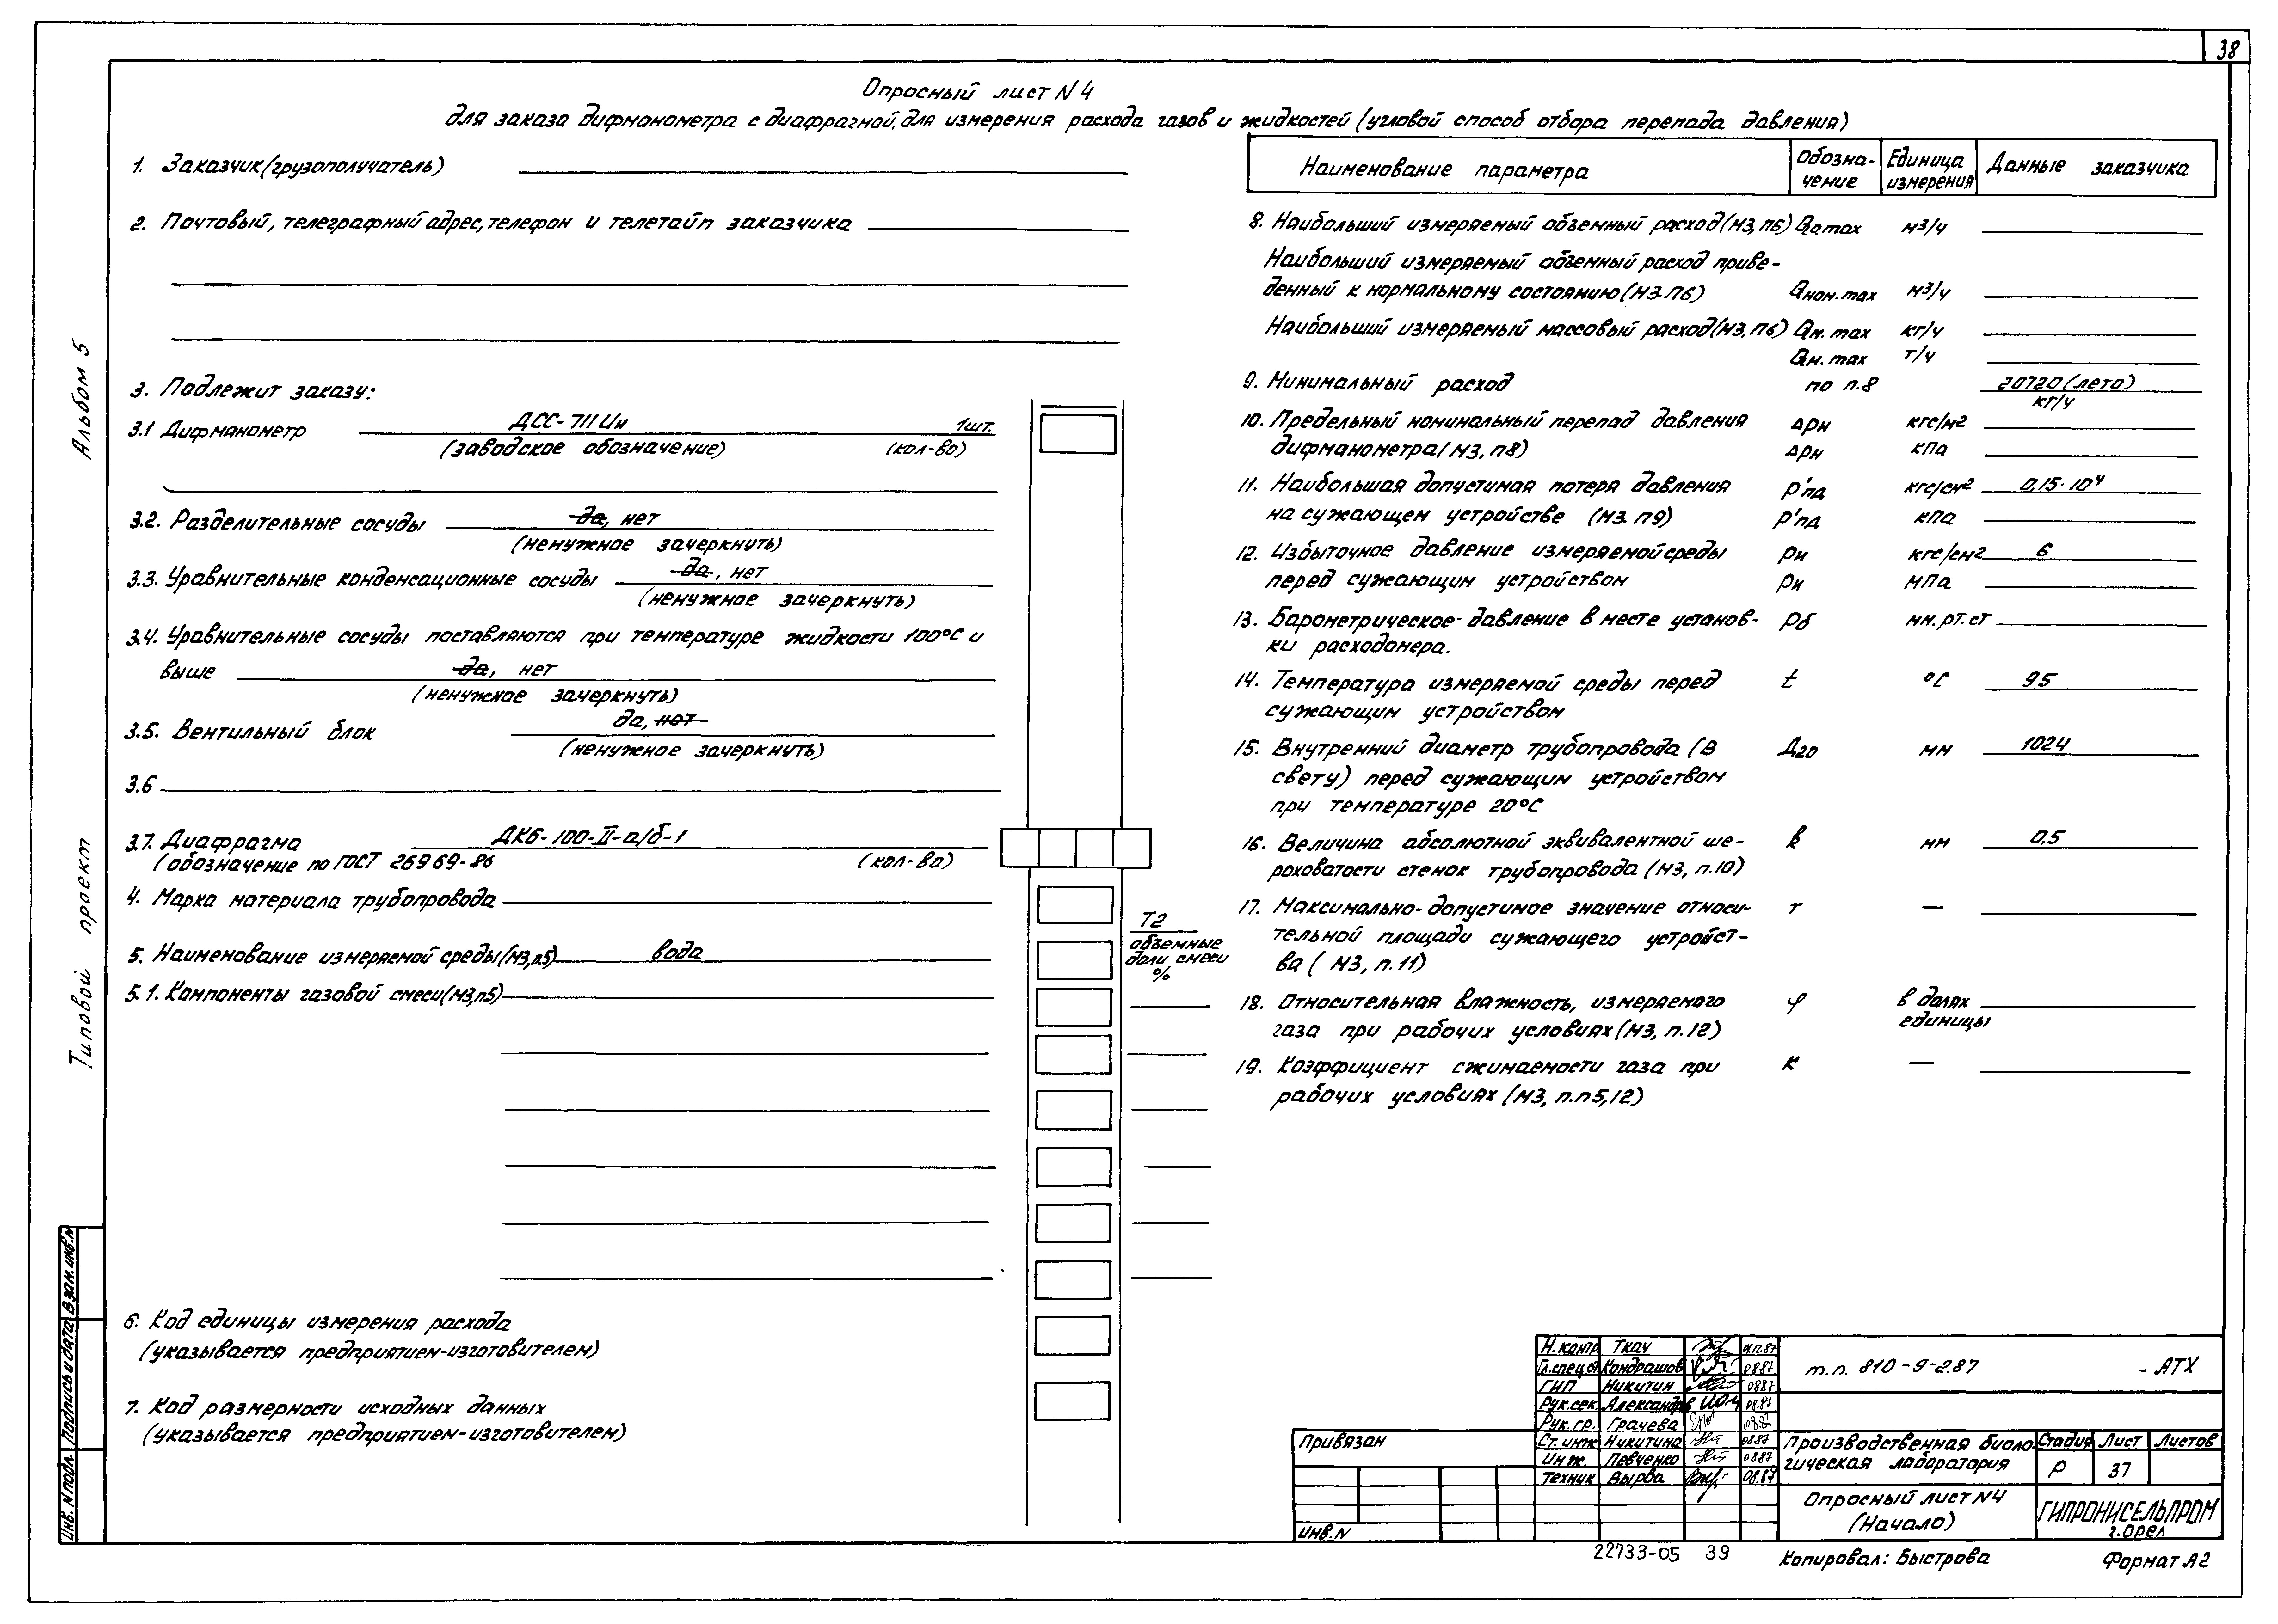 38
Опросный лист N 4
для заказа дифманометра с диафрагмой, для измерения расхода газов и жидкостей (угловой способ отбора перепада давления)
1. Заказчик (грузополучатель)
2. Почтовый, телеграфный адрес, телефон и телетайп заказчика
3. Подлежит заказу:
3.1 Дифманометр ДСС-711 Ин 1шт.
(заводское обозначение) (кол-во)
3.2. Разделительные сосуды да, нет
(ненужное зачеркнуть)
3.3. Уравнительные конденсационные сосуды да, нет
(ненужное зачеркнуть)
3.4. Уравнительные сосуды поставляются при температуре жидкости 100°С и
выше да, нет
(ненужное зачеркнуть)
3.5. Вентильный блок да, нет
(ненужное зачеркнуть)
3.6
3.7. Диафрагма ДК6-100-II-а/б-1
(обозначение по ГОСТ 26969-86 (кол-во)
4. Марка материала трубопровода
5. Наименование измеряемой среды (М3, п5) вода
Т2
объемные
доли смеси
%
5.1. Компоненты газовой смеси (М3, п5)
6. Код единицы измерения расхода
(указывается предприятием-изготовителем)
7. Код размерности исходных данных
(указывается предприятием-изготовителем)
Наименование параметра Обозна- Единица Данные заказчика
чение измерения
8. Наибольший измеряемый объемный расход (М3, п6) Qо.max м3/ч
Наибольший измеряемый объемный расход приве-
денный к нормальному состоянию (М3. П6) Qном.max м3/ч
Наибольший измеряемый массовый расход (М3, П6) Qм.max кг/ч
Qм.max т/ч
9. Минимальный расход по п.8 20720 (лето)
кг/ч
10. Предельный номинальный перепад давления ΔРн кгс/м2
дифманометра (М3, п8) ΔРн кПа
11. Наибольшая допустимая потеря давления Р'пд кгс/см2 0,15·10⁴
на сужающем устройстве (М3. П9) Р'пд кПа
12. Избыточное давление измеряемой среды Ри кгс/см2 6
перед сужающим устройством Ри МПа
13. Барометрическое давление в месте установ- Рб мм.рт.ст
ки расходомера.
14. Температура измеряемой среды перед t °С 95
сужающим устройством
15. Внутренний диаметр трубопровода (в Д20 мм 1024
свету) перед сужающим устройством
при температуре 20°С
16. Величина абсолютной эквивалентной ше- k мм 0,5
роховатости стенок трубопровода (М3, п.10)
17. Максимально-допустимое значение относи- т —
тельной площади сужающего устройст-
ва (М3, п.11)
18. Относительная влажность, измеряемого φ в долях
газа при рабочих условиях (М3, п.12) единицы
19. Коэффициент сжимаемости газа при К —
рабочих условиях (М3, п.п5,12)
Альбом 5
Типовой проект
Инв. N подл. Подпись и дата Взам. инв. N
Н. контр Ткач 01.12.87
Гл.спец.от Кондрашов 08.87
ГИП Никитин 08.87
Рук.сек. Александров 08.87
Рук. гр. Грачева 08.87
Ст. инж Никитина 08.87
Инж. Певченко 08.87
Техник Вырва 08.87
т.п. 810-9-2.87 - АТХ
Привязан
Инв. N
Производственная биоло- Стадия Лист Листов
гическая лаборатория Р 37
Опросный лист N4
(Начало)
ГИПРОНИСЕЛЬПРОМ
г. Орел
22733-05 39 Копировал: Быстрова Формат А2